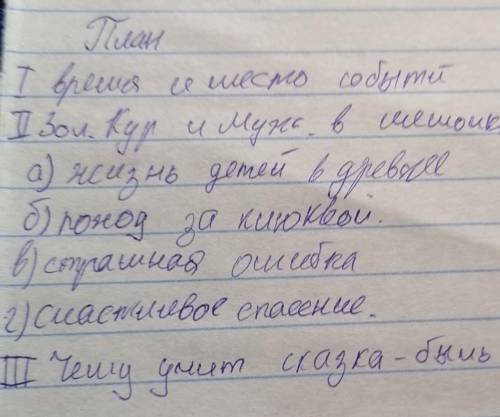 План
I время и место событй
II Зол. Кур и Мужс. в мешочк
а) жизнь детей в древне
б) поход за клюквой.
в) страшная ошибка
г) счастливое спасение.
III Чему учит сказка-быль